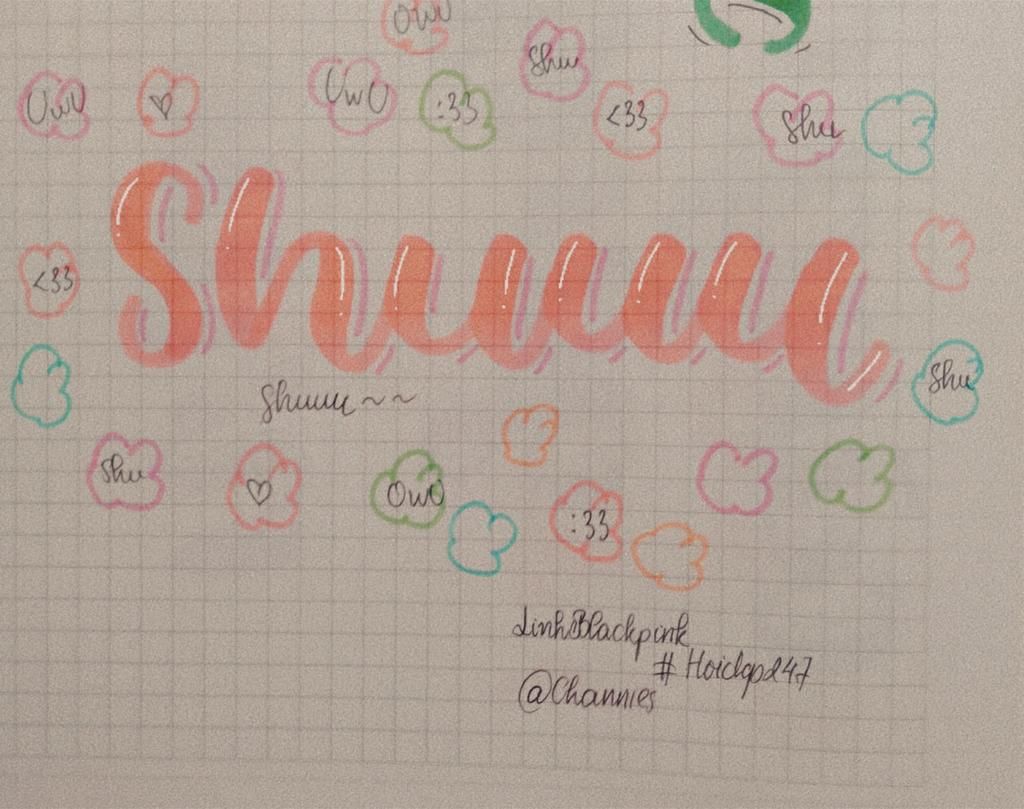 OwO
Shu
UwU ♡ UwU :33 <33 Shu
Shuuuu
<33
Shu
Shuuu~~
Shu ♡ OwO :33
LinhBlackpink
#Hoidqpd247
@Channies